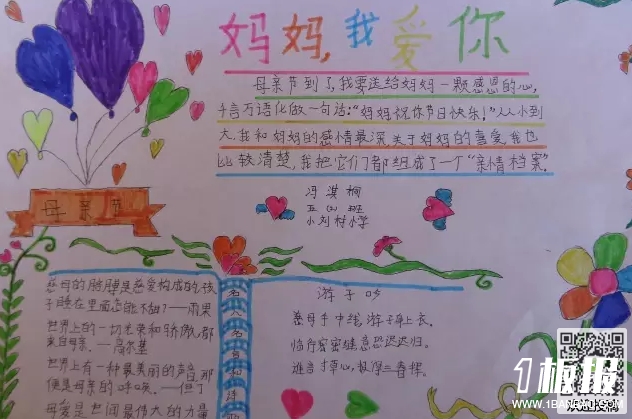 妈妈,我爱你
母亲节到了,我要送给妈妈一颗感恩的心,
千言万语化做一句话:"妈妈祝你节日快乐!"从小到
大,我和妈妈的感情最深,关于妈妈的喜爱,我也
比较清楚,我把它们都组成了一个"亲情档案".
冯淇桐
五(4)班
小刘村小学
母亲节
慈母的胳膊是慈爱构成的,孩
子睡在里面怎能不甜?——雨果
世界上的一切光荣和骄傲,都
来自母亲.——高尔基
世界上有一种最美丽的声音,那
便是母亲的呼唤.——但丁
母爱是世间最伟大的力量
名人名言
游子吟
慈母手中线,游子身上衣.
临行密密缝,意恐迟迟归.
谁言寸草心,报得三春晖.
1板报
WWW.1BANBAO.COM